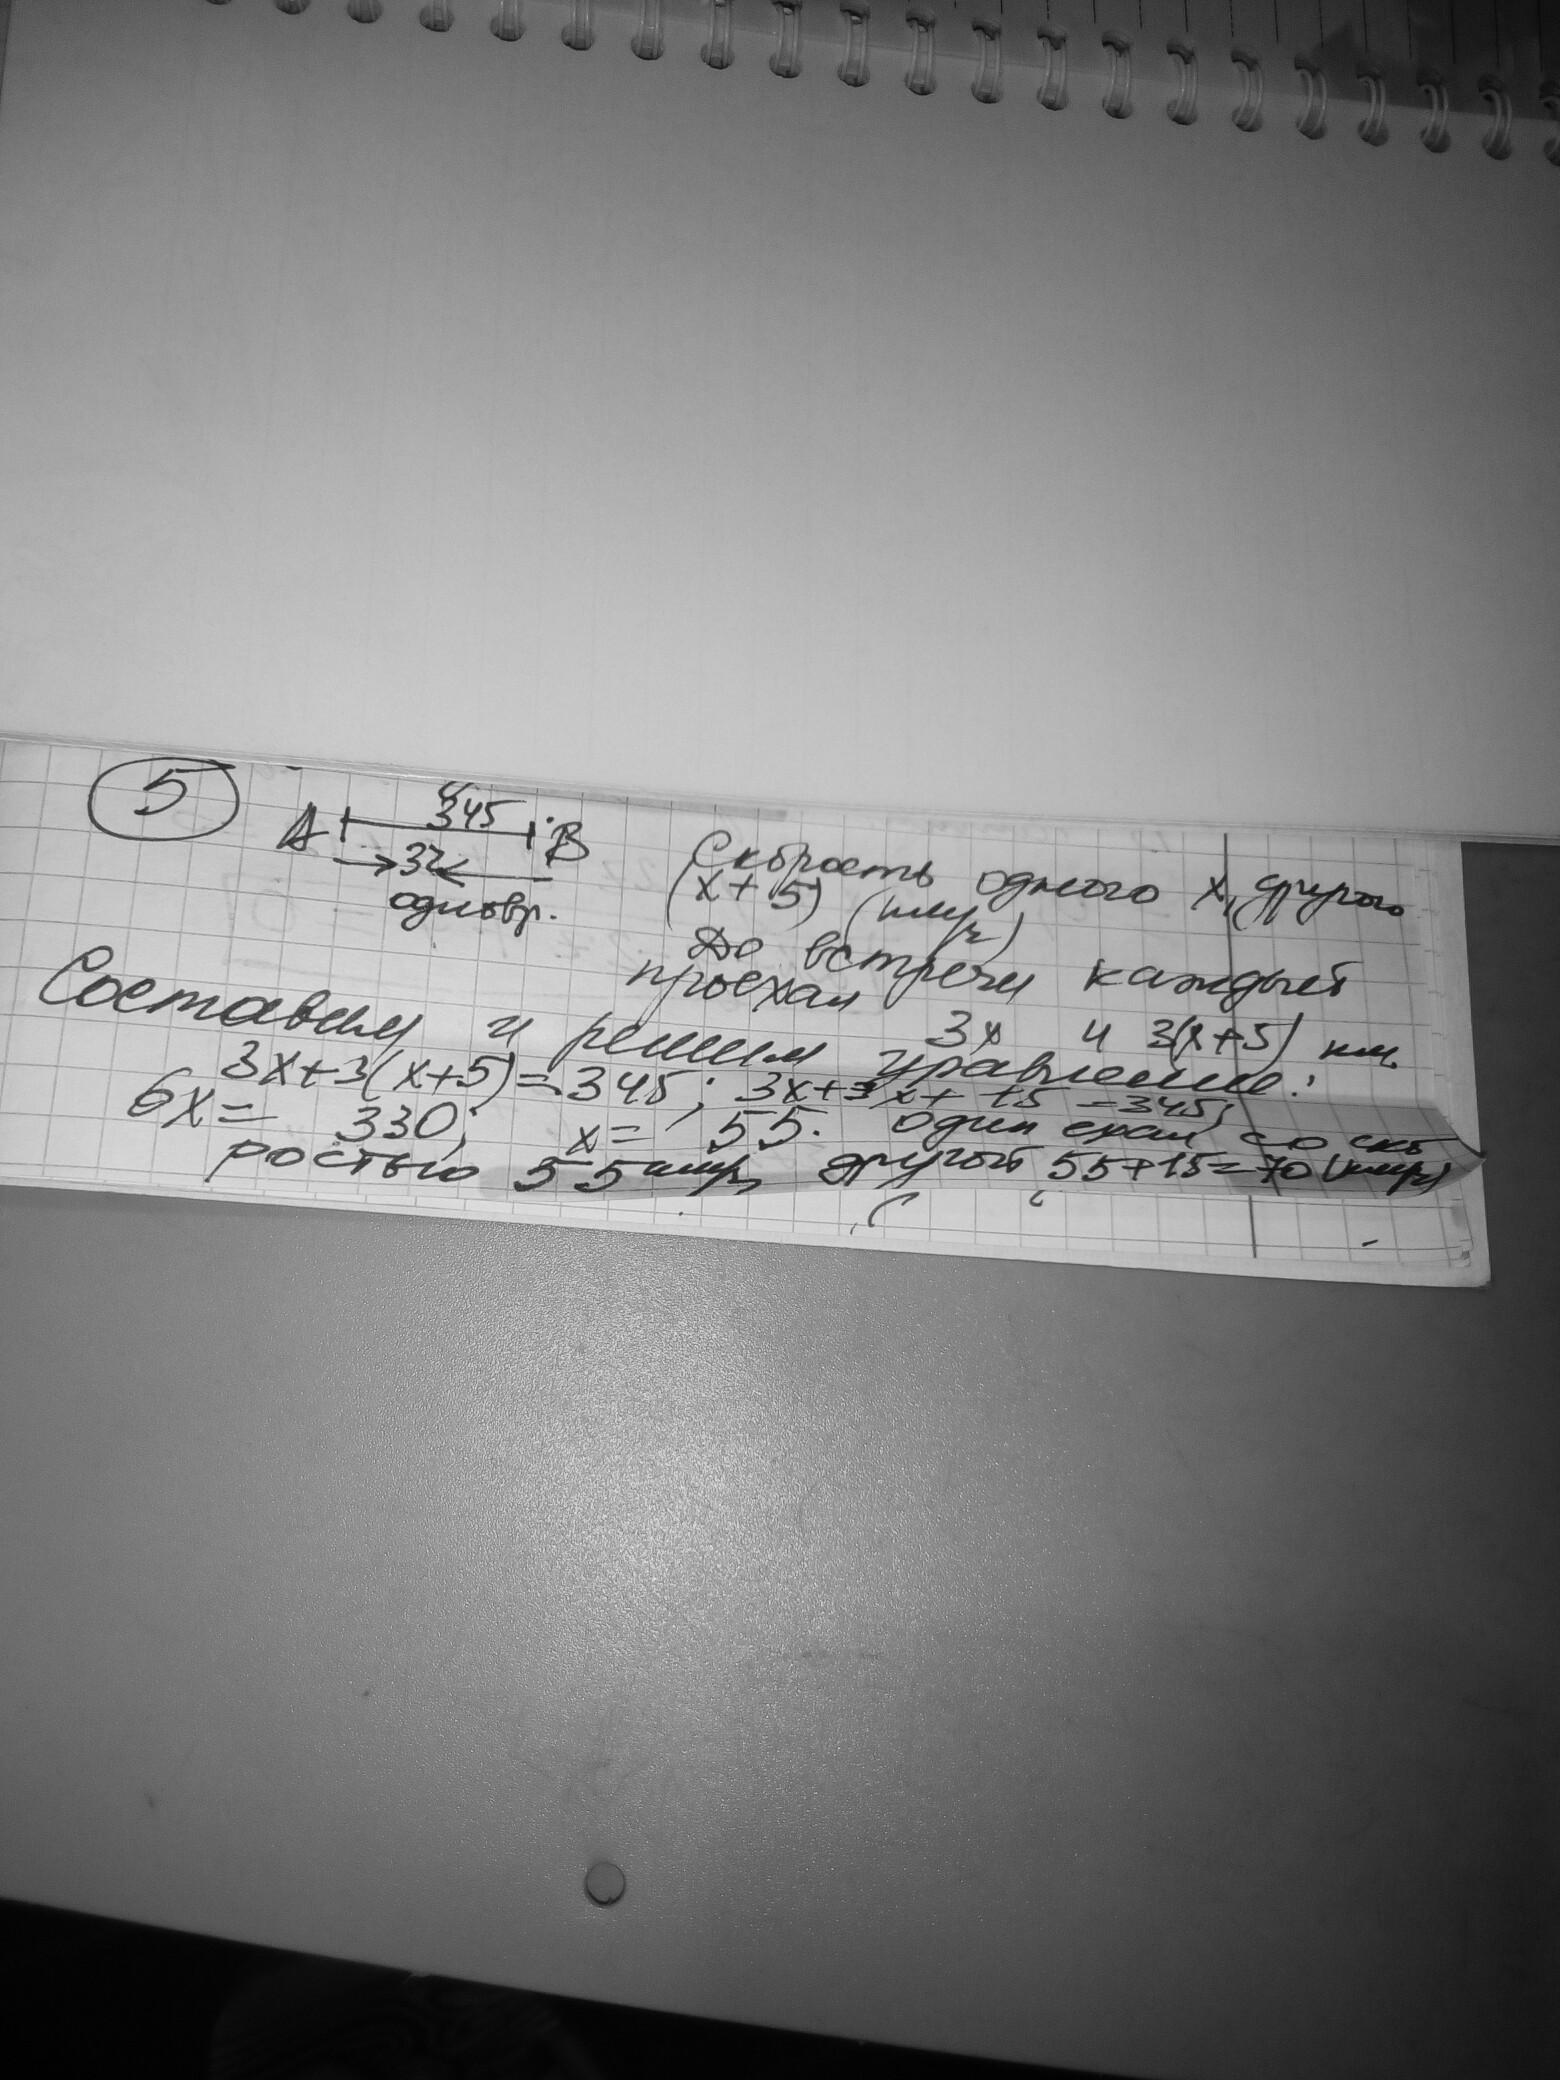 5
345
A B
3ч
одновр.
Скорость одного x, другого
(x+5) (км/ч)
До встречи каждый
проехал
3x и 3(x+5) км.
Составим и решим уравнение:
3x+3(x+5)=345; 3x+3x+15=345;
6x= 330; x= 55. один ехал со ско
ростью 55 км/ч, другой 55+15=70 (км/ч)